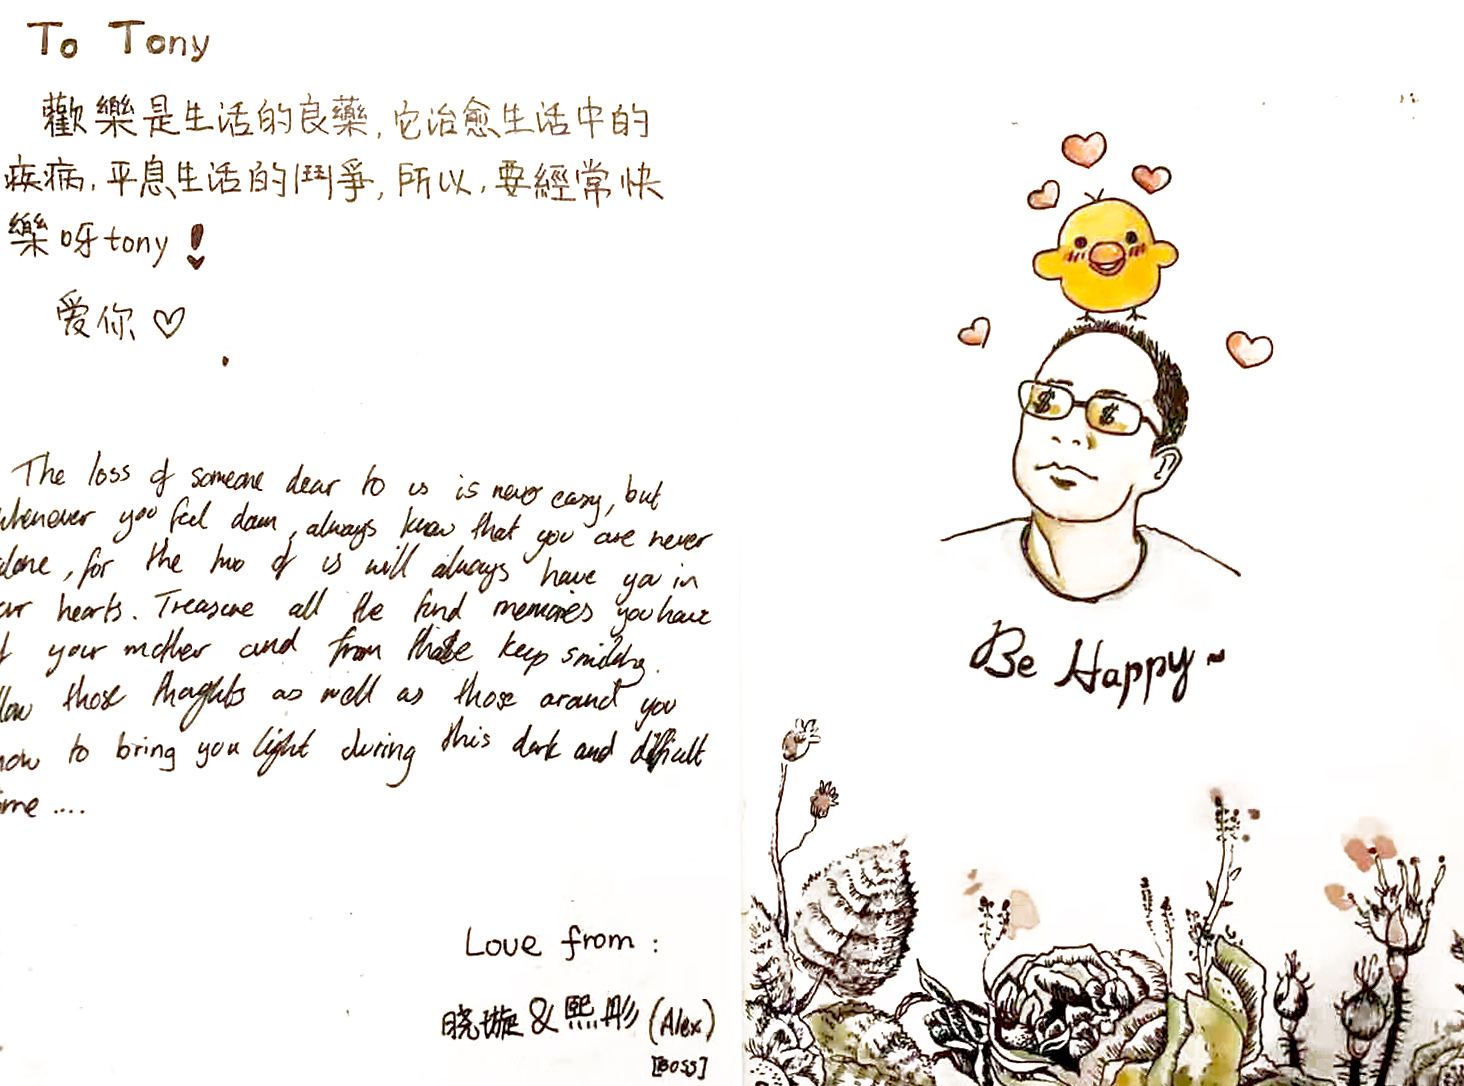 To Tony
歡樂是生活的良藥,它治愈生活中的
疾病,平息生活的鬥爭,所以,要經常快
樂呀tony!
爱你♡
The loss of someone dear to us is never easy, but
whenever you feel down, always know that you are never
alone, for the two of us will always have you in
our hearts. Treasure all the fond memories you have
of your mother and from those keep smiling.
allow those thoughts as well as those around you
now to bring you light during this dark and difficult
time ....
Love from :
晓璇 & 熙彤 (Alex)
[BOSS]
$ $
Be Happy~